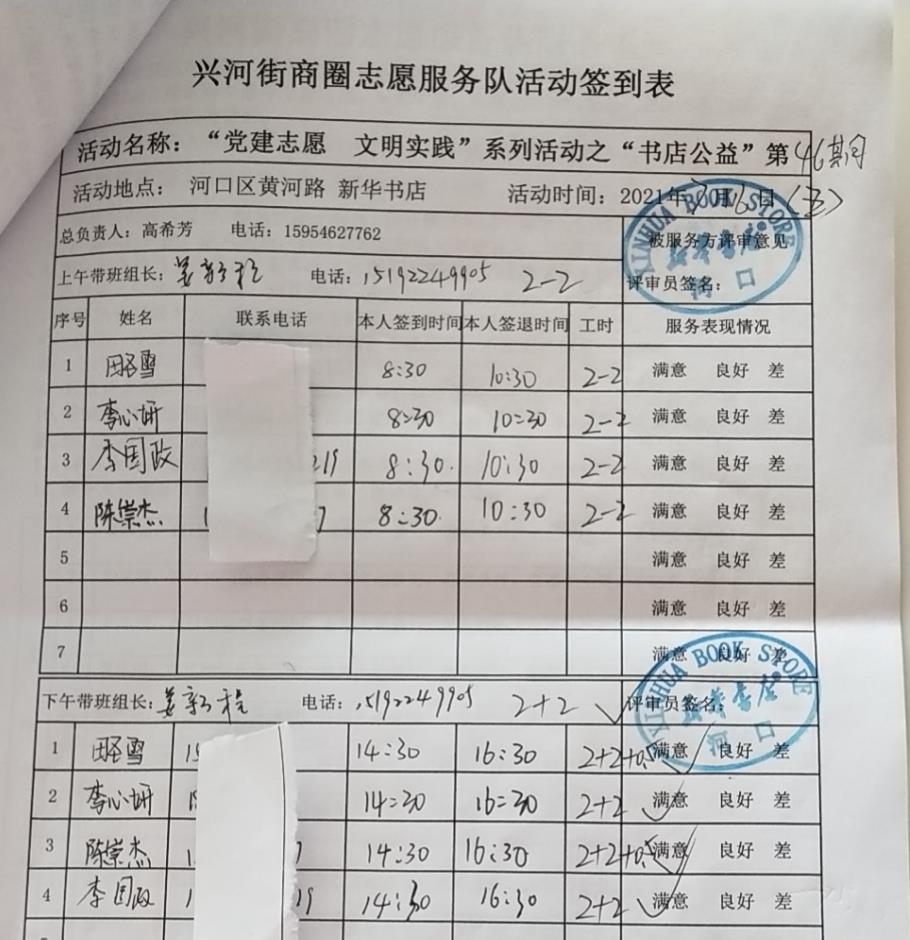 兴河街商圈志愿服务队活动签到表
活动名称：“党建志愿 文明实践”系列活动之“书店公益”第46期
活动地点： 河口区黄河路 新华书店 活动时间：2021年 月16日（五）
总负责人：高希芳 电话：15954627762 被服务方评审意见
上午带班组长：姜新程 电话：15192249905 2-2 评审员签名：
XINHUA BOOK STORE
新华书店
河口
序号 姓名 联系电话 本人签到时间 本人签退时间 工时 服务表现情况
1 田圣雪 8:30 10:30 2-2 满意 良好 差
2 李心妍 8:30 10:30 2-2 满意 良好 差
3 李国政 219 8:30 10:30 2-2 满意 良好 差
4 陈崇杰 1 7 8:30 10:30 2-2 满意 良好 差
5 满意 良好 差
6 满意 良好 差
7 满意 良好 差
XINHUA BOOK STORE
新华书店
河口
下午带班组长：姜新程 电话：15192249905 2+2 评审员签名：
1 田圣雪 15 14:30 16:30 2+2+0.5 满意 良好 差
2 李心妍 14:30 16:30 2+2 满意 良好 差
3 陈崇杰 1 7 14:30 16:30 2+2+0.5 满意 良好 差
4 李国政 1 19 14:30 16:30 2+2 满意 良好 差